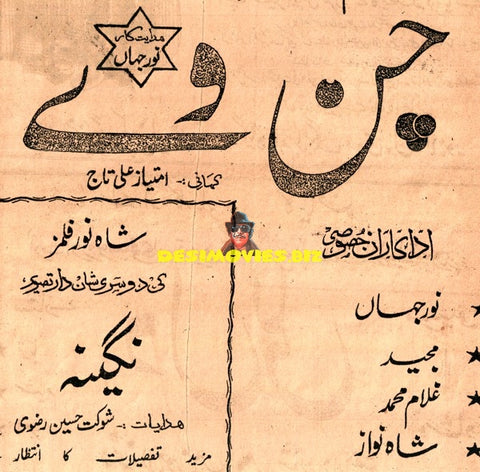 ہدایتکار
نور جہاں
چن وے
کہانی :- امتیاز علی تاج
اداکاران خصوصی
نور جہاں
مجید
غلام محمد
شاہ نواز
DESIMOVIES.BIZ
شاہ نور فلمز
کی دوسری شاندار تصویر
نگینہ
ہدایات :- شوکت حسین رضوی
مزید تفصیلات کا انتظار